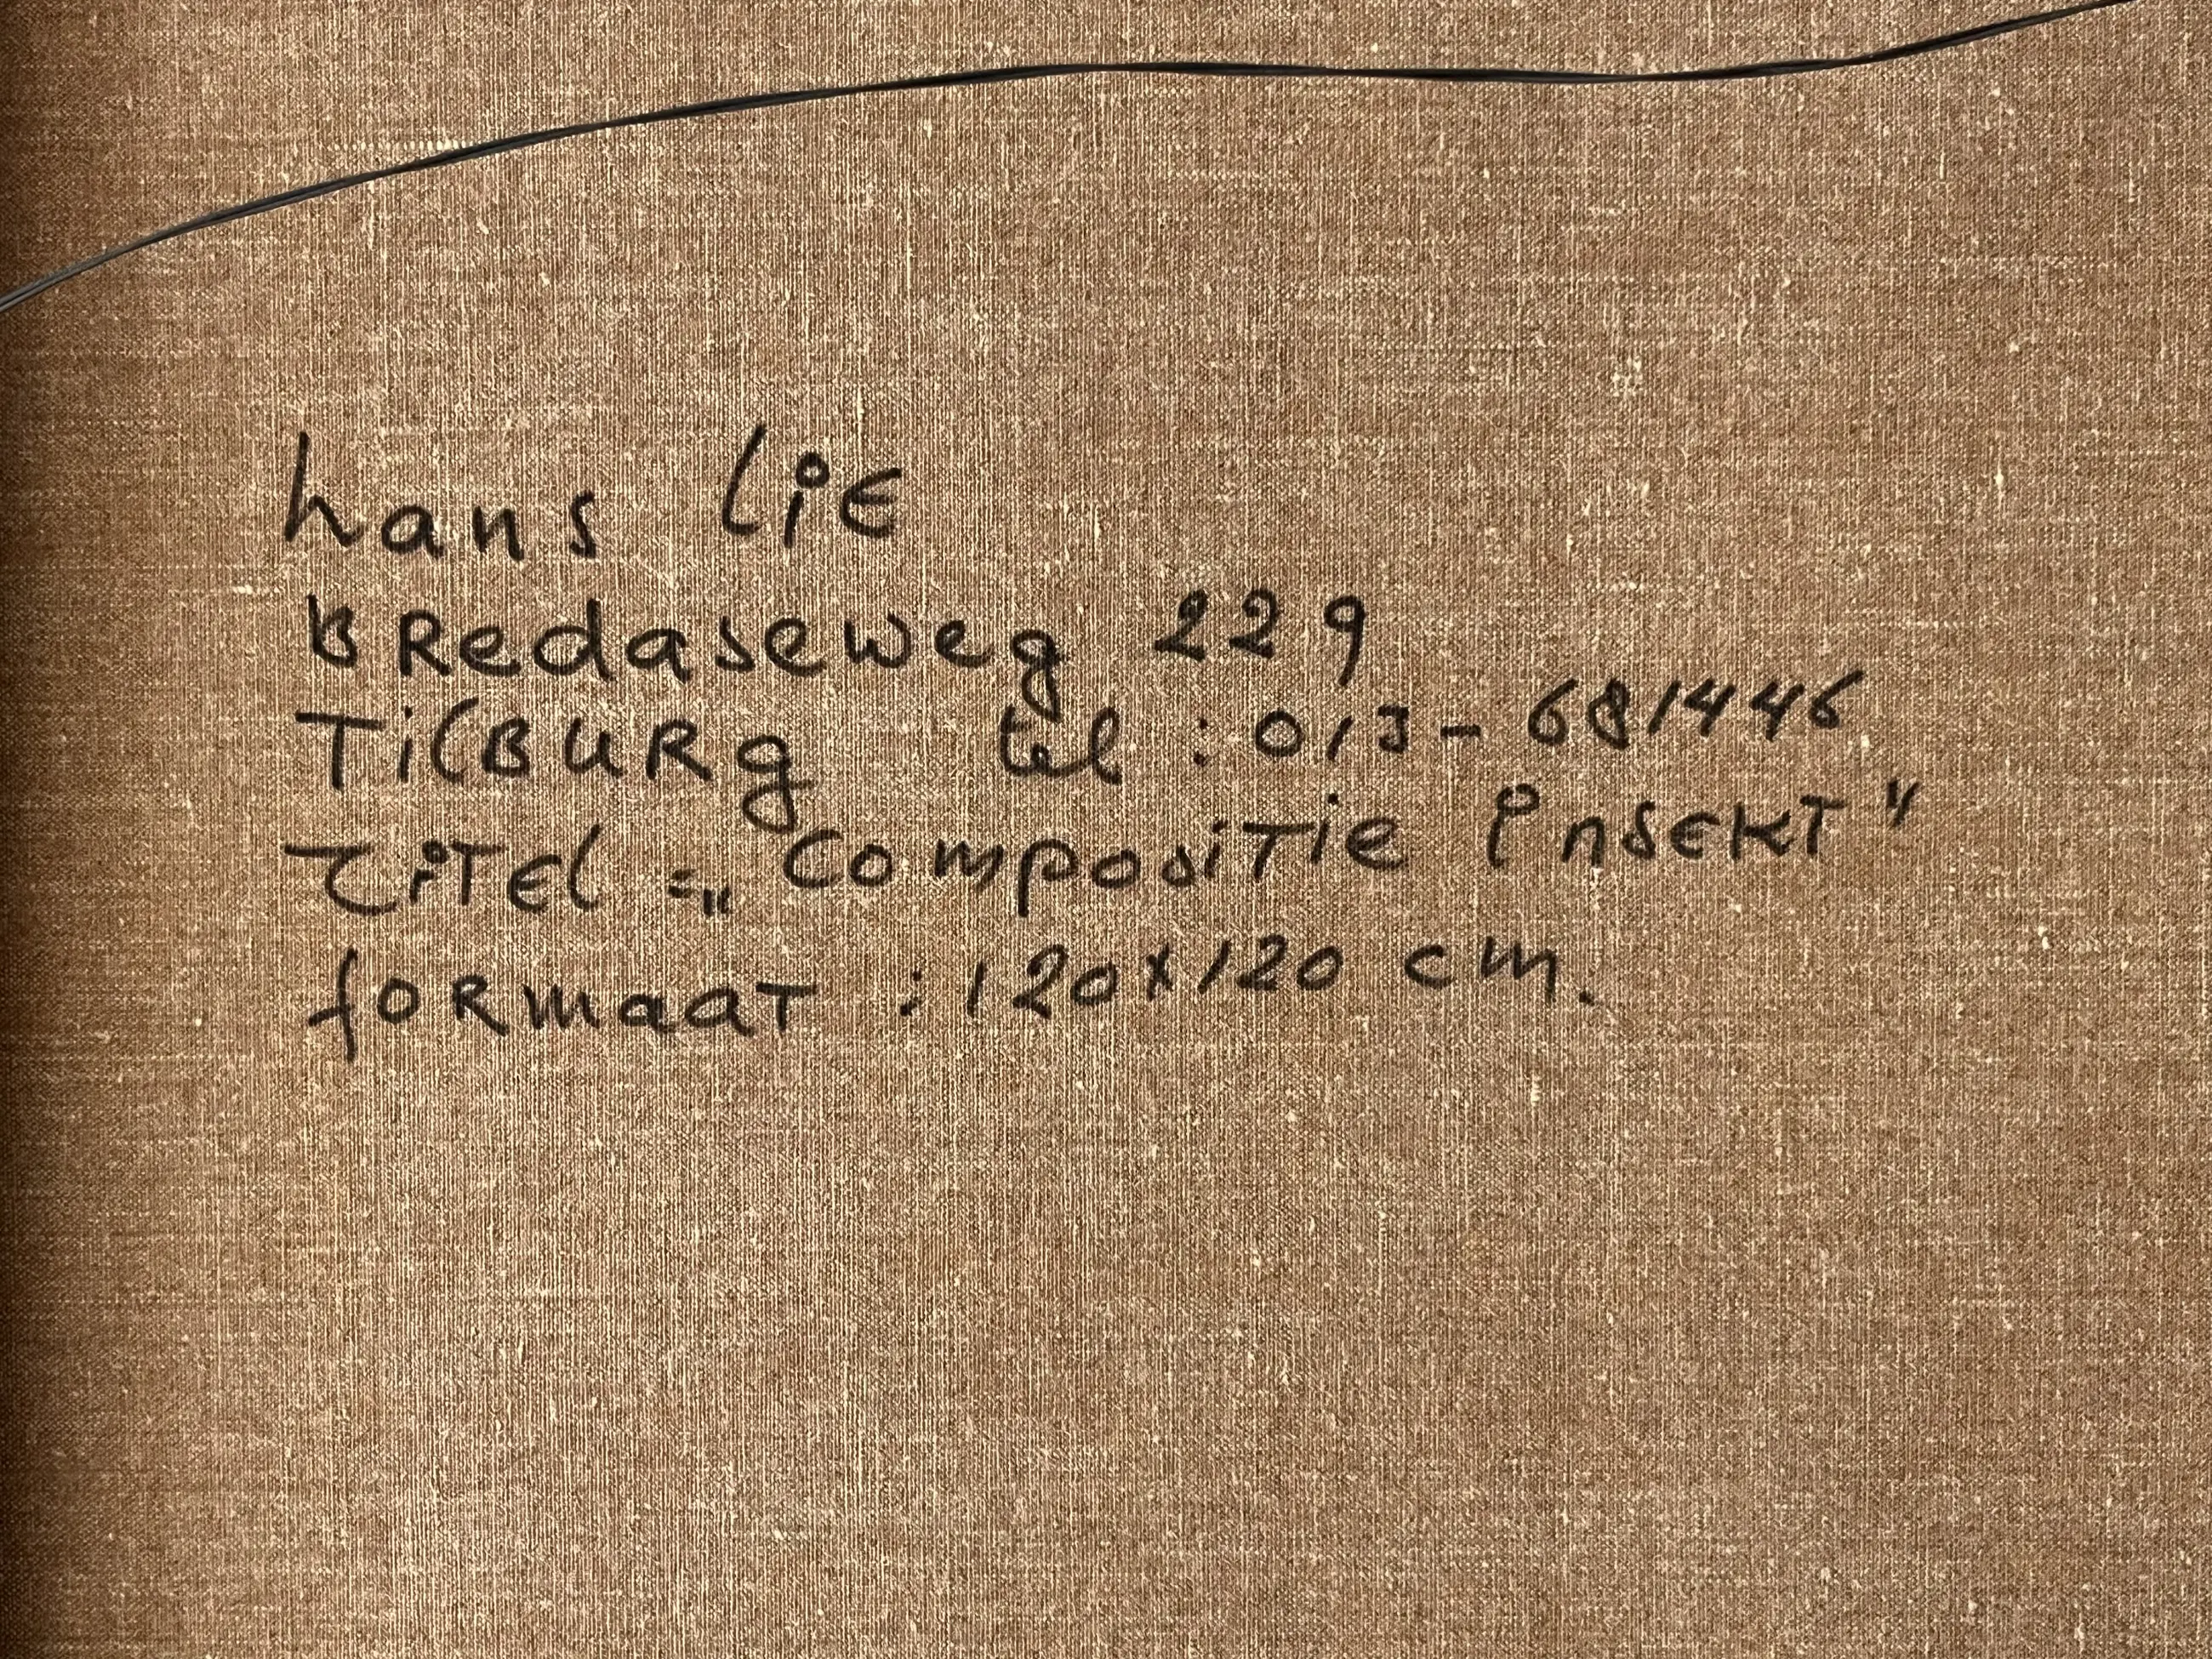 hans liE
BRedaseweg 229
TilBURg tel : 013 - 681446
TiTEl : „ComposiTie InsEKT"
foRmaaT : 120x120 cm.